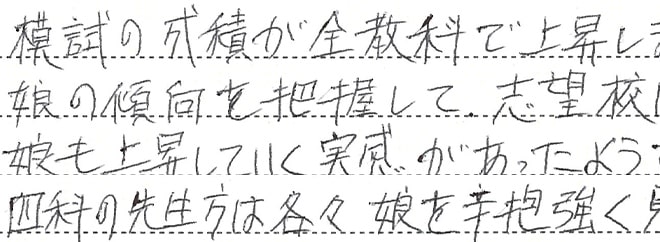 模試の成績が全教科で上昇しま
娘の傾向を把握して、志望校
娘も上昇していく実感があったよう
四科の先生方は各々 娘を辛抱強く